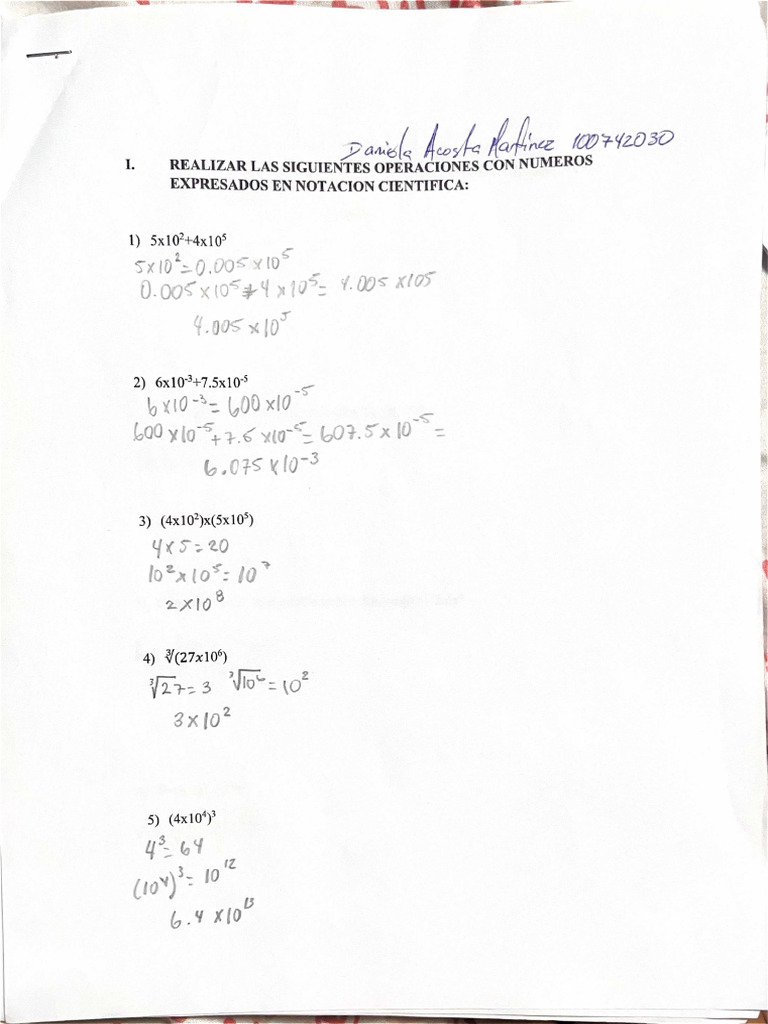 Daniela Acosta Martínez 100742030
I. REALIZAR LAS SIGUIENTES OPERACIONES CON NUMEROS
EXPRESADOS EN NOTACION CIENTIFICA:
1) 5x10²+4x10⁵
5x10²=0.005x10⁵
0.005x10⁵+4x10⁵= 4.005x105
4.005x10⁵
2) 6x10⁻³+7.5x10⁻⁵
6x10⁻³=600x10⁻⁵
600x10⁻⁵+7.5x10⁻⁵=607.5x10⁻⁵=
6.075x10⁻³
3) (4x10²)x(5x10⁵)
4x5=20
10²x10⁵=10⁷
2x10⁸
4) ∛(27x10⁶)
∛27=3 ∛10⁶=10²
3x10²
5) (4x10⁴)³
4³=64
(10⁴)³=10¹²
6.4x10¹³